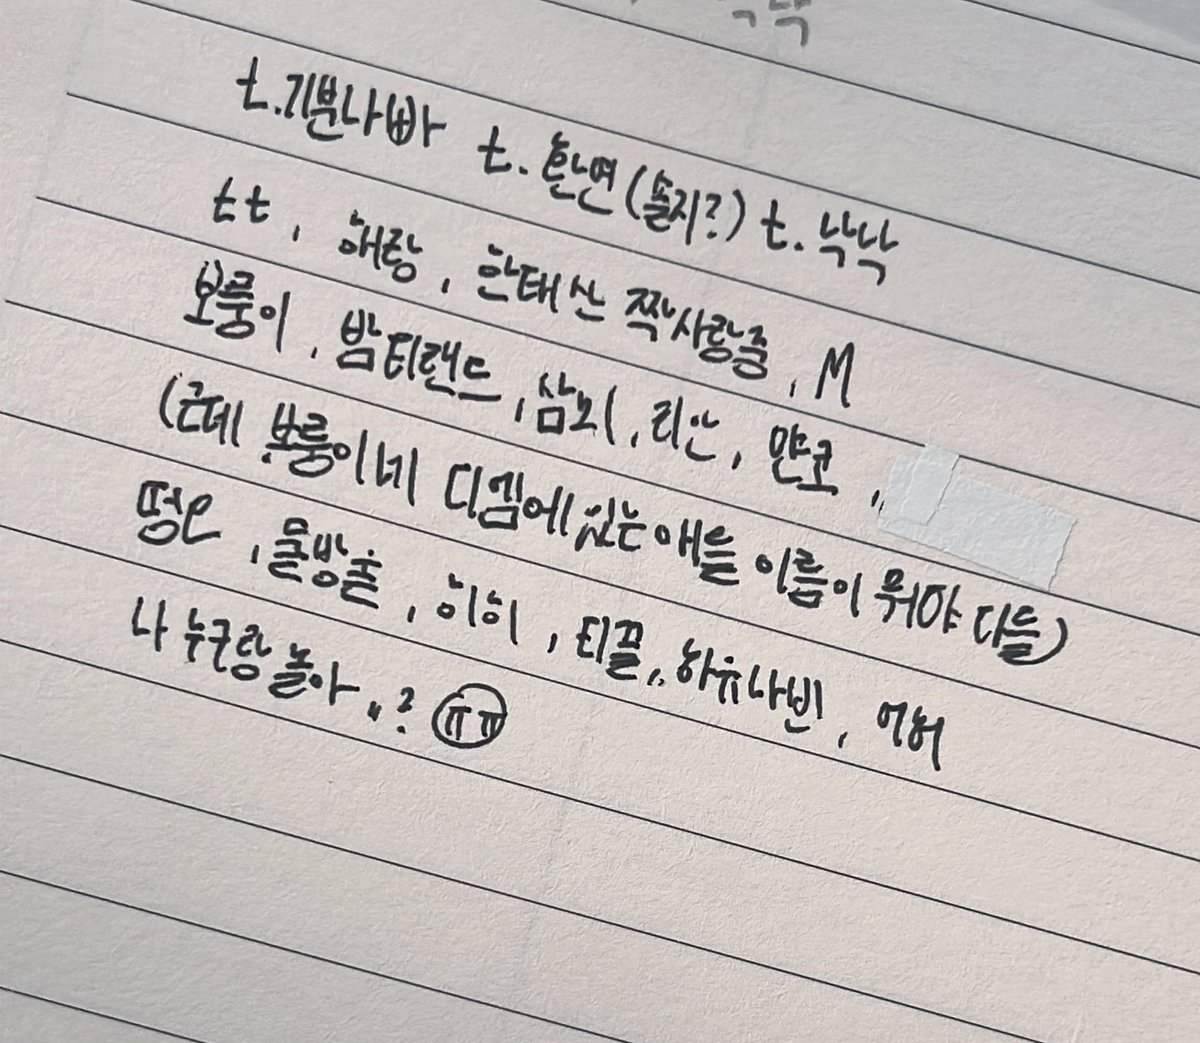 t.기분나빠 t.환연(솔지?) t.낙낙
tt, 해랑, 한태산 짝사랑중, M
보룽이, 밤티랜드, 삼뇌, 리안, 먄코,,
(근데 보룽이네 디껨에 있는 애들 이름이 뭐야 다들)
떵은, 물방울, 히히, 티끌,, 하슈나빈, 어허
나 누구랑 놀아,,? ㅠㅠ